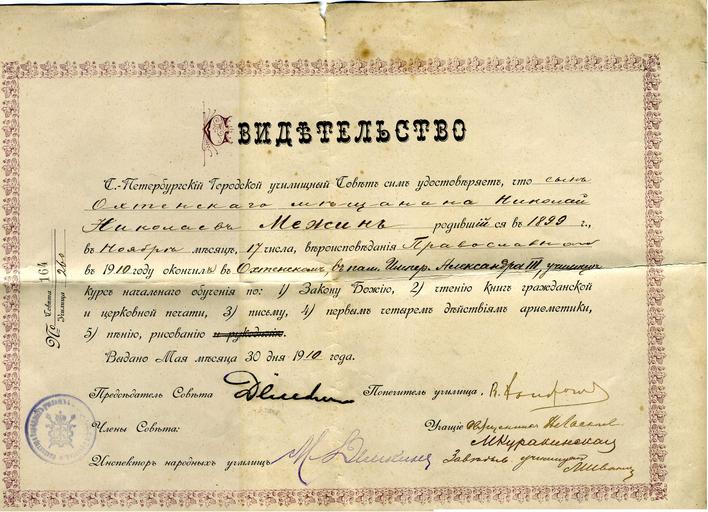 Свидѣтельство
С.-Петербургскій Городской училищный Совѣтъ симъ удостовѣряетъ, что сынъ
Охтенскаго мѣщанина Николай
Николаевъ Межинъ родившійся въ 1899 г.,
въ Ноябрѣ мѣсяцѣ, 17 числа, вѣроисповѣданія Православнаго
въ 1910 году окончилъ въ Охтенскомъ, въ пам. Импер. Александра III, училищѣ
курсъ начальнаго обученія по: 1) Закону Божію, 2) чтенію книгъ гражданской
и церковной печати, 3) письму, 4) первымъ четыремъ дѣйствіямъ ариѳметики,
5) пѣнію, рисованію и рукодѣлію.
Выдано Мая мѣсяца 30 дня 1910 года.
По Совѣта 164
Училища 260
Предсѣдатель Совѣта
Попечитель училища
Члены Совѣта:
Учащіе Священникъ
Инспекторъ народныхъ училищъ